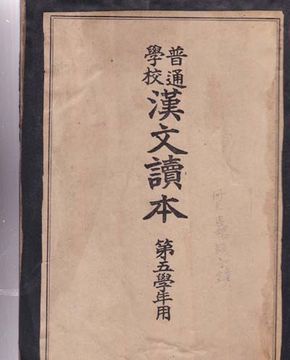 普通
學校
漢文讀本
第五學年用